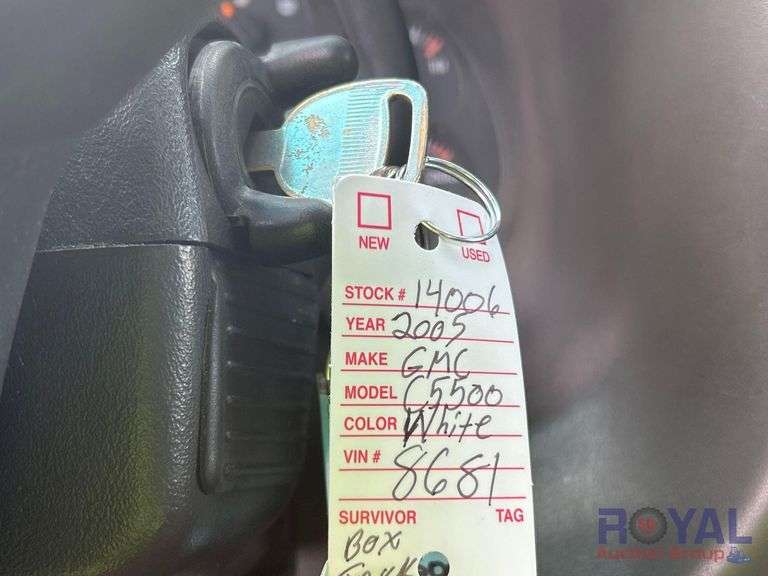 NEW
USED
STOCK # 14006
YEAR 2005
MAKE GMC
MODEL C5500
COLOR White
VIN # 8681
SURVIVOR TAG
BOX
ROYAL
Auction Group